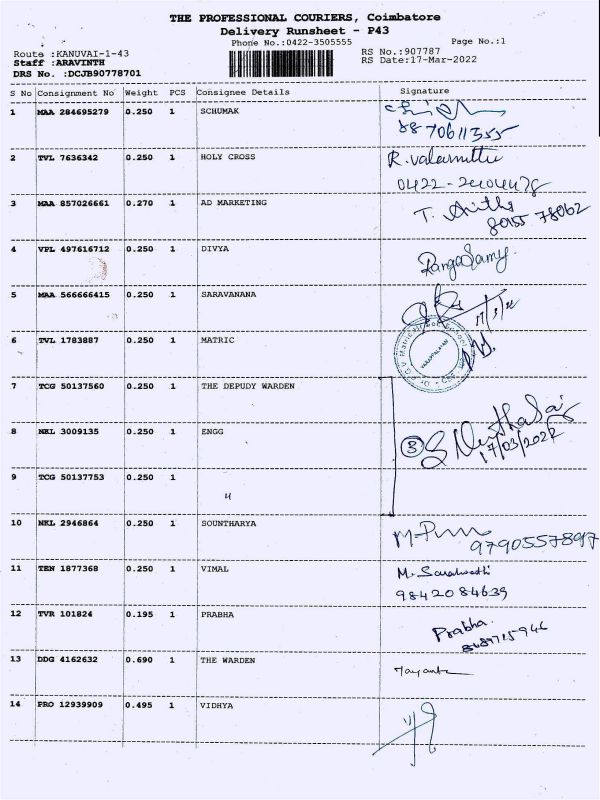 THE PROFESSIONAL COURIERS, Coimbatore
Delivery Runsheet - P43
Phone No.:0422-3505555 Page No.:1
Route :KANUVAI-1-43 RS No.:907787
Staff :ARAVINTH RS Date:17-Mar-2022
DRS No. :DCJB90778701
S No Consignment No Weight PCS Consignee Details Signature
1 MAA 284695279 0.250 1 SCHUMAK
8870611355
2 TVL 7636342 0.250 1 HOLY CROSS
0422-
3 MAA 857026661 0.270 1 AD MARKETING T.
80155 78062
4 VPL 497616712 0.250 1 DIVYA RangaSamy
5 MAA 566666415 0.250 1 SARAVANANA
6 TVL 1783887 0.250 1 MATRIC
7 TCG 50137560 0.250 1 THE DEPUDY WARDEN
8 NKL 3009135 0.250 1 ENGG 3
17/03/2022
9 TCG 50137753 0.250 1
10 NKL 2946864 0.250 1 SOUNTHARYA
9790557897
11 TEN 1877368 0.250 1 VIMAL M.
9842084639
12 TVR 101824 0.195 1 PRABHA Prabha.
13 DDG 4162632 0.690 1 THE WARDEN
14 PRO 12939909 0.495 1 VIDHYA